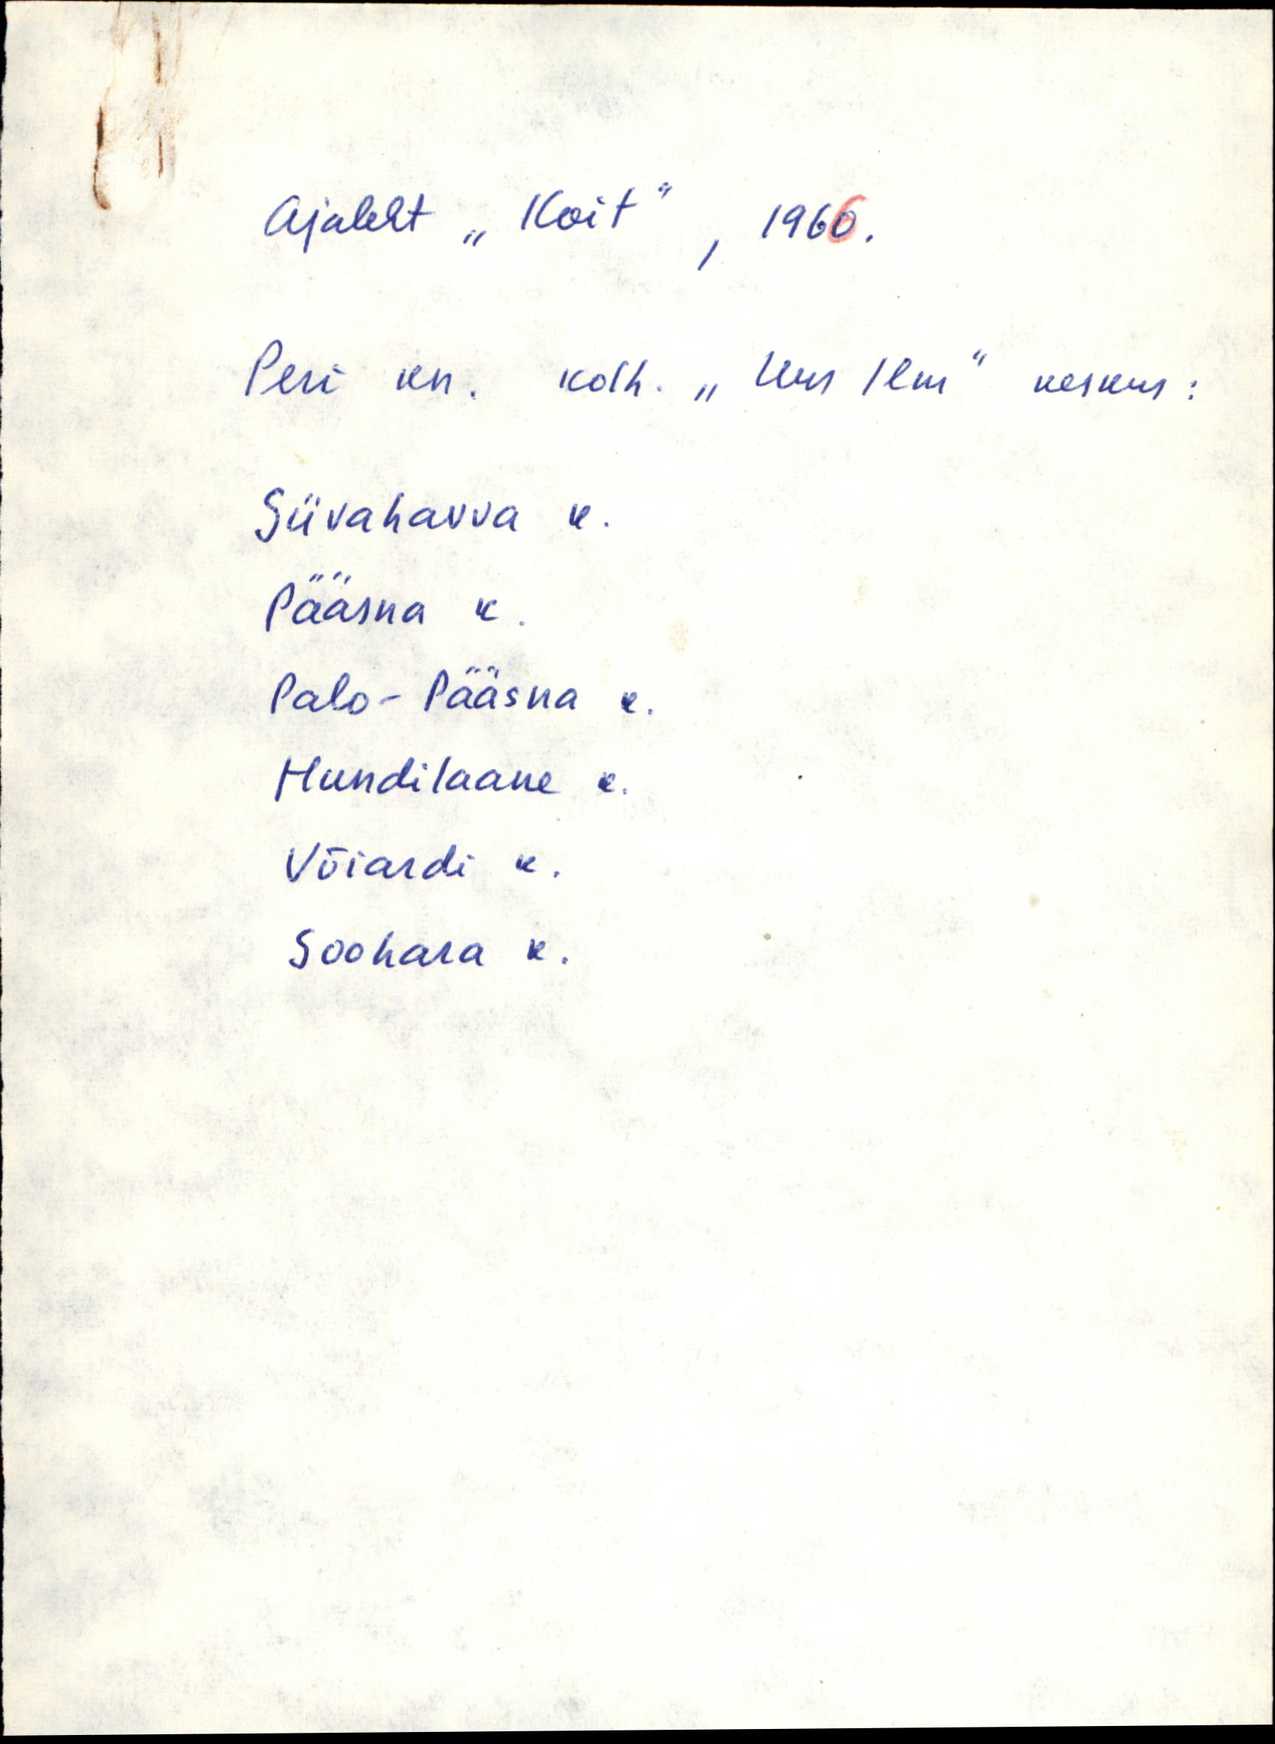 Ajaleht „Koit", 1966.
Peri kn. kolh. „Uus Ilm" keskus:
Süvahavva k.
Pääsna k.
Palo-Pääsna k.
Hundilaane k.
Võiardi k.
Soohara k.